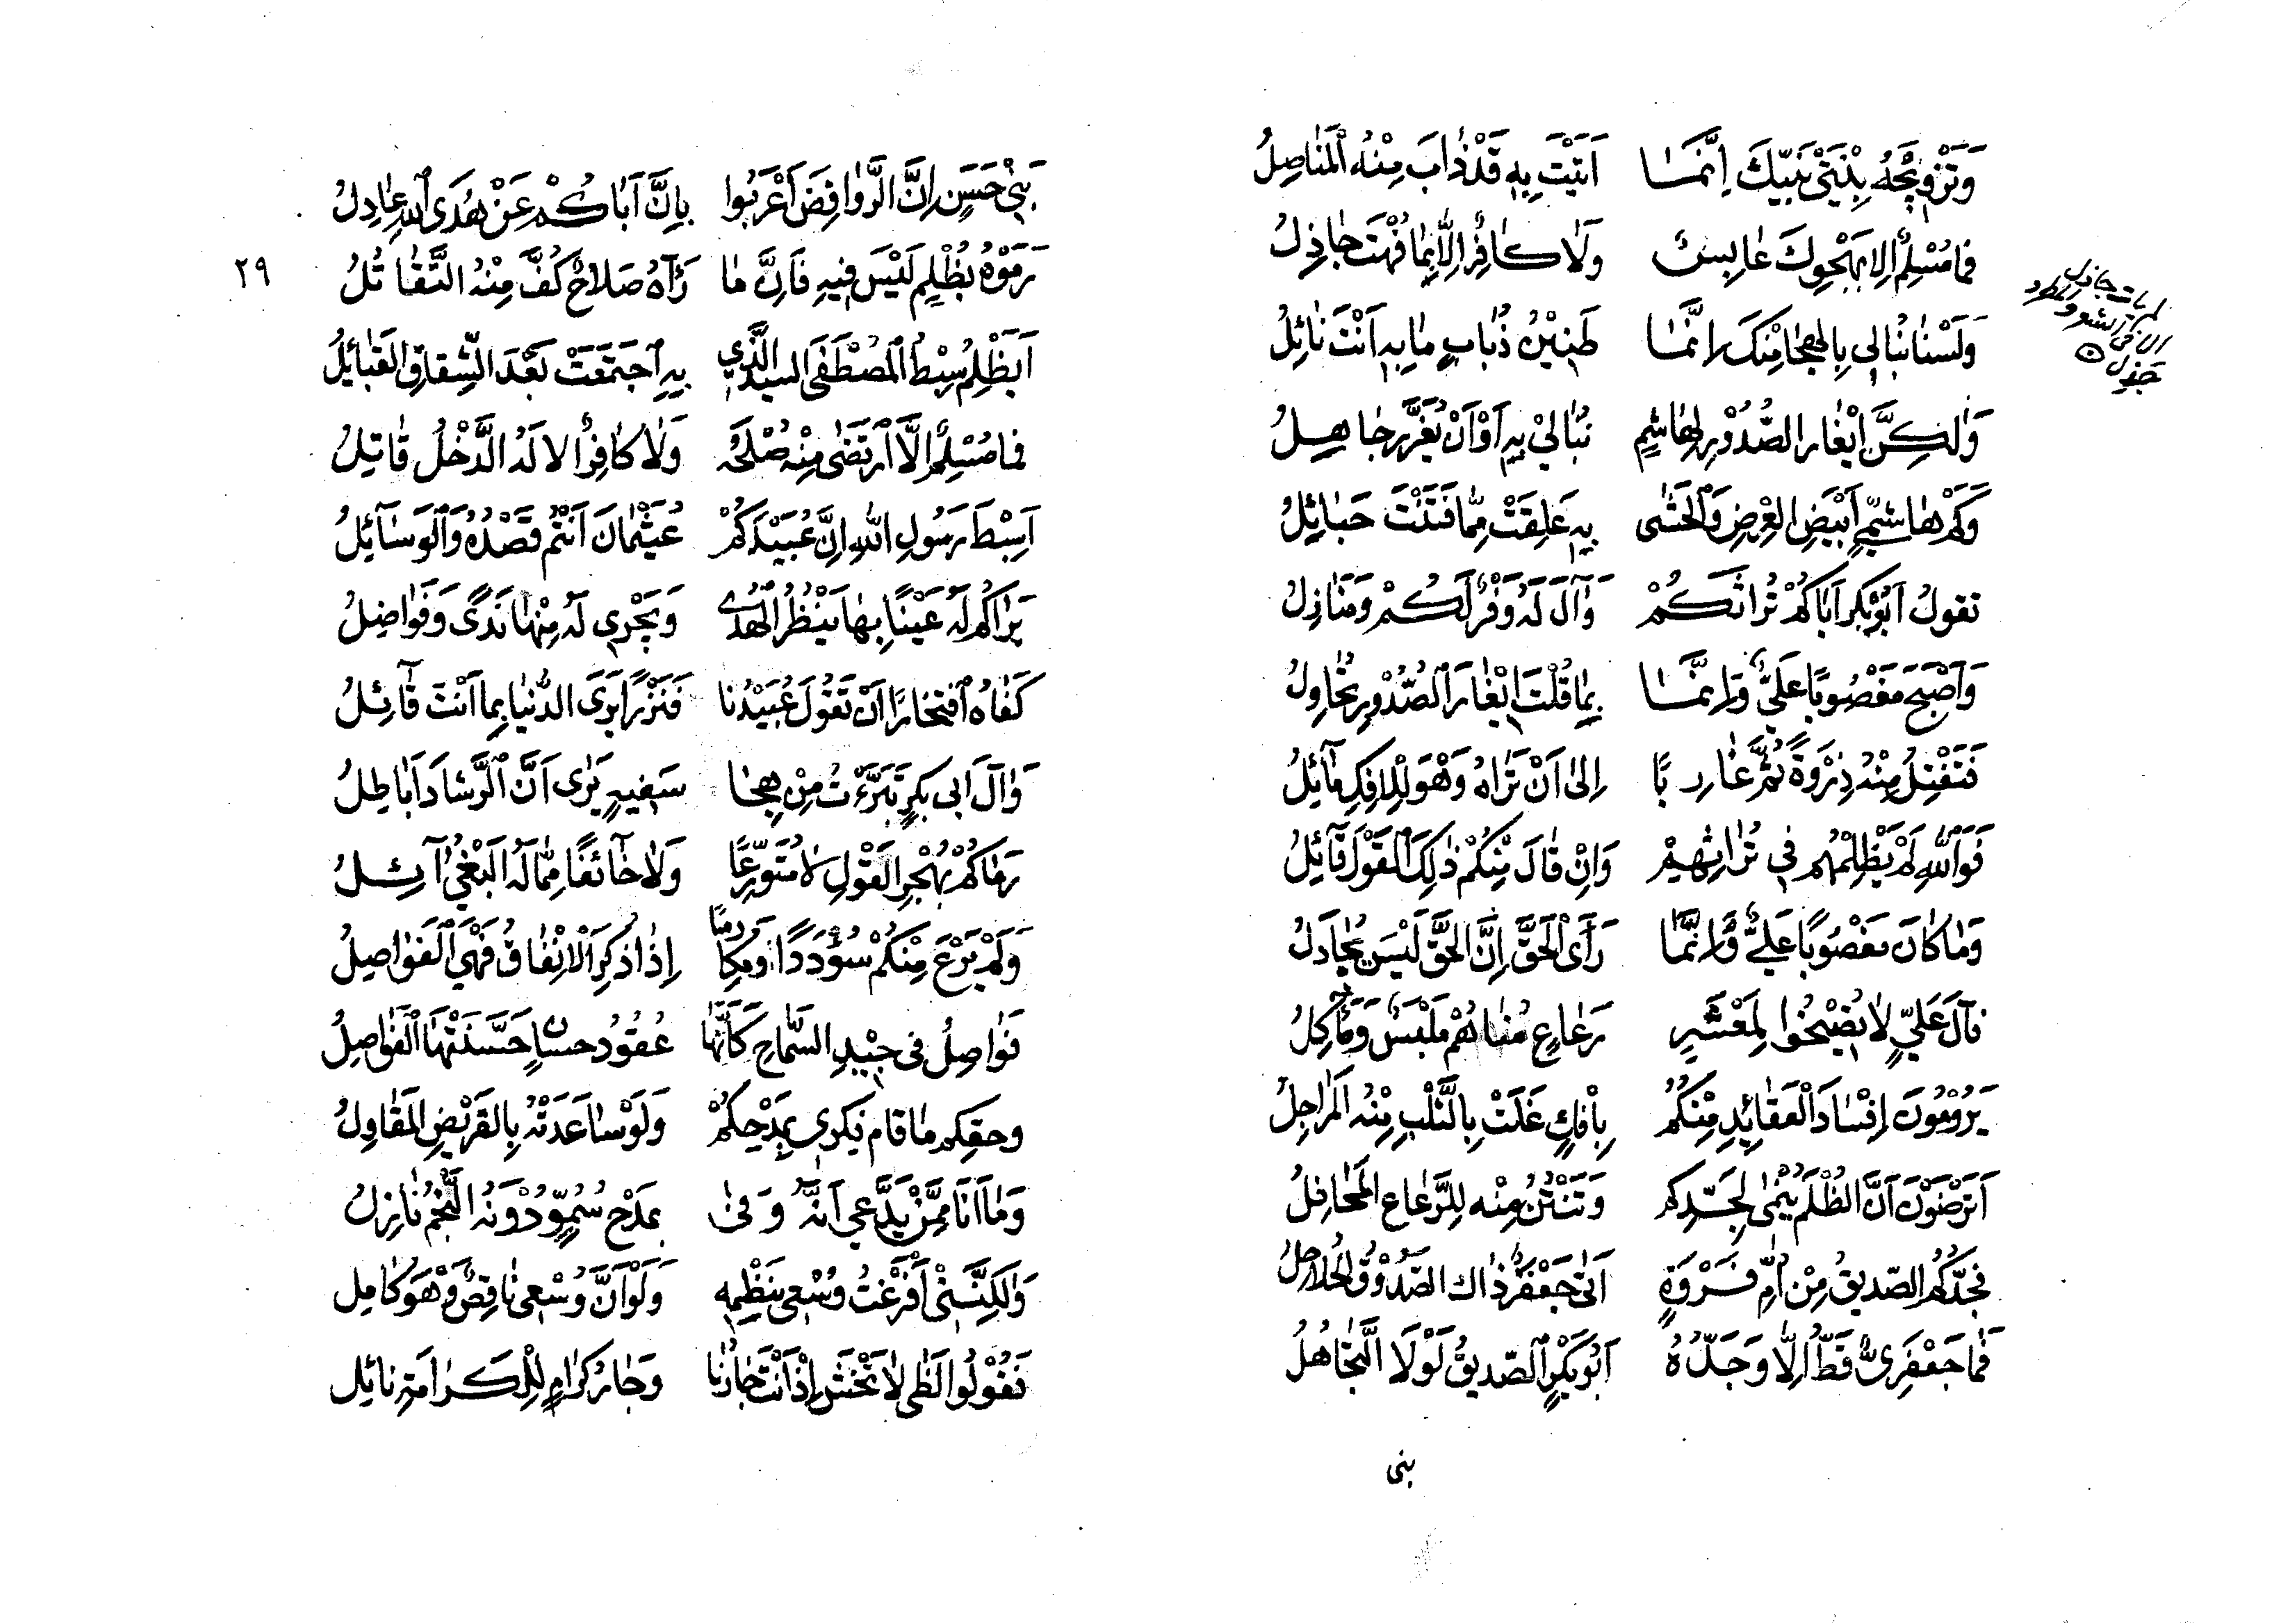 وَتَزْوِيجُهُ بِنْتَيْ نَبِيِّكَ اِنَّمَا اَتَيْتَ بِهِ قَدْ ذَابَ مِنْهُ الْمَنَاصِلُ
فَمَا مُسْلِمٌ اِلا بِهَجْوِكَ عَابِسٌ وَلَا كَافِرٌ اِلَّا بِمَا فُهْتَ جَاذِلُ
وَلَسْنَا نُبَالِي بِالهِجَا مِنْكَ اِنَّمَا طَنِيْنُ ذُبَابٍ مَا بِهِ اَنْتَ نَائِلُ
وَلٰكِنَّ اِيْغَارَ الصُّدُوْرِ لِهَاشِمٍ نُبَالِيْ بِهِ اَوْ اَنْ يُغَرَّرَ جَاهِلُ
وَكَمْ هَاشِمِيٍّ اَبْيَضِ العِرْضِ وَالْحَشٰى بِهِ عَلِقَتْ مِمَّا فَتَلْتَ حَبَائِلُ
تَقُولُ اَبُوبَكْرٍ اَبَاكُمْ تُرَاثَكُمْ وَآلَ لَهُ وَفْرٌ لَكُمْ وَمَنَازِلُ
وَاَصْبَحَ مَغْصُوبًا عَلِيٌّ وَاِنَّمَا بِمَا قُلْتَ اِيْغَارَ الصُّدُوْرِ تُحَاوِلُ
فَتَفْتِلُ مِنْهُ ذِرْوَةً ثُمَّ غَارِبًا اِلىٰ اَنْ تَرَاهُ وَهْوَ لِلْاِفكِ مَآئِلُ
فَوَاللهِ لَمْ يَظْلِمْهُم فِي تُرَاثِهِمْ وَاِنْ قَالَ مِنْكُمْ ذٰلِكَ الْقَوْلَ قَآئِلُ
وَمَا كَانَ مَغْصُوبًا عَلِيٌّ وَاِنَّمَا رَأَى الْحَقَّ اِنَّ الحَقَّ لَيْسَ يُجَادَلُ
فَآلَ عَلِيٍّ لَا تُصِيْخُوا لِمَعْشَرٍ رَعَاعٍ مُنَاهُمْ مَلْبَسٌ وَمَآكِلُ
يَرُوْمُوْنَ اِفْسَادَ الْعَقَائِدِ مِنْكُمُ بِاِفْكٍ غَلَتْ بِالثَّلْبِ مِنْهُ الْمَرَاجِلُ
اَتَرْضَوْنَ اَنَّ الظُّلْمَ يُنْمٰى لِجَدِّكُم وَتَنْتُنُ مِنْه لِلرَّعَاعِ الْمَحَافِلُ
فَجَدُّكُمُ الصِّديقُ مِنْ اُمِّ فَرْوَةٍ اَتٰى جَعْفَرٌ ذَاكَ الصَّدُوْقُ الحُلَاحِلُ
فَمَا جَعْفَرِيٌّ قَطُّ اِلَّا وَجَدُّهُ اَبُوبَكْرٍ الصِّدِيقُ لَوْلَا التَّجَاهُلُ
بنى
جذل
بَنِي حَسَنٍ اِنَّ الرَّوَافِضَ اَعْرَبُوا بِاَنَّ اَبَاكُمْ عَنْ هُدَى اللهِ عَادِلُ
٢٩
رَمَوْهُ بِظُلْمٍ لَيْسَ فِيهِ فَاِنَّ مَا رَآهُ صَلَاحٌ كُفَّ مِنْهُ التَّقَاتُلُ
اَيَظْلِمُ سِبْطُ الْمُصْطَفَى السيد الَّذِي بِهِ اجْتَمَعَتْ بَعْدَ الشِّقَاقِ القَبَائِلُ
فَمَا مُسْلِمٌ اِلَّا ارْتَضٰى مِنْه صُلْحَهُ وَلَا كَافِرٌ الا لَهُ الذَّحْلُ قَاتِلُ
اَسِبْطَ رَسُولِ اللهِ اِنَّ عُبَيْدَكُمْ عُثَيْمَانَ اَنْتُمْ قَصْدُهُ وَالْوَسَآئِلُ
يَرَاكُم لَهُ عَيْنًا بِهَا يَنْظُرُ الْهُدٰى وَيَجْرِي لَهُ مِنْهَا نَدًى وَفَوَاضِلُ
كَفَاهُ افْتِخَارًا اَنْ تَقُولَ عُبَيْدُنَا فَنَزْرًا يَرَى الدُّنْيَا بِمَا اَنْتَ قَآئِلُ
وَآلَ اَبِى بَكْرٍ تَبَرَّءْتُ مِنْ هِجَا سَفِيهٍ يَرٰى اَنَّ الرَّشَادَ اَبَاطِلُ
رَمَاكُمْ بِهُجْرِ القَوْلِ لَا مُتَوَرِّعًا وَلَا خَآئفًا مِمَّا لَهُ البَغْيُ آئِلُ
وَلَمْ يَرْعَ مِنْكُمْ سُؤْدَدًا وَمَكَارِمًا اِذَا ذُكِرَ الْاِنْفَاقُ فَهْيَ الْفَوَاصِلُ
فَوَاصِلُ فى جِيْدِ السَّمَاحِ كَاَنَّهَا عُقُودُ حسانٍ حَسَّنَتْهَا الْفَوَاصِلُ
وحقِكم مَا قَام فِكرِي بِمَدْحِكُمْ وَلَوْ سَاعَدَتْهُ بِالقَرِيْضِ الْمَقَاوِلُ
وَمَا اَنَا مِمَّنْ يَدَّعِي اَنَّهُ وَفىٰ بِمَدْحِ سُمُوٍّ دُوْنَهُ النَّجْمُ نَازِلُ
وَلٰكِنَّنِىْ اَفْرَغْتُ وُسْعِي بِنَظْمِهِ وَلَوْ اَنَّ وُسْعِي نَاقِصٌ وَهْوَ كَامِل
تَقُوْلُوا لَظٰى لَا تَخْشَ اِذْ اَنْتَ جَارُنَا وَجَارُ كِرَامٍ لِلْكَرَامَةِ نَائِل